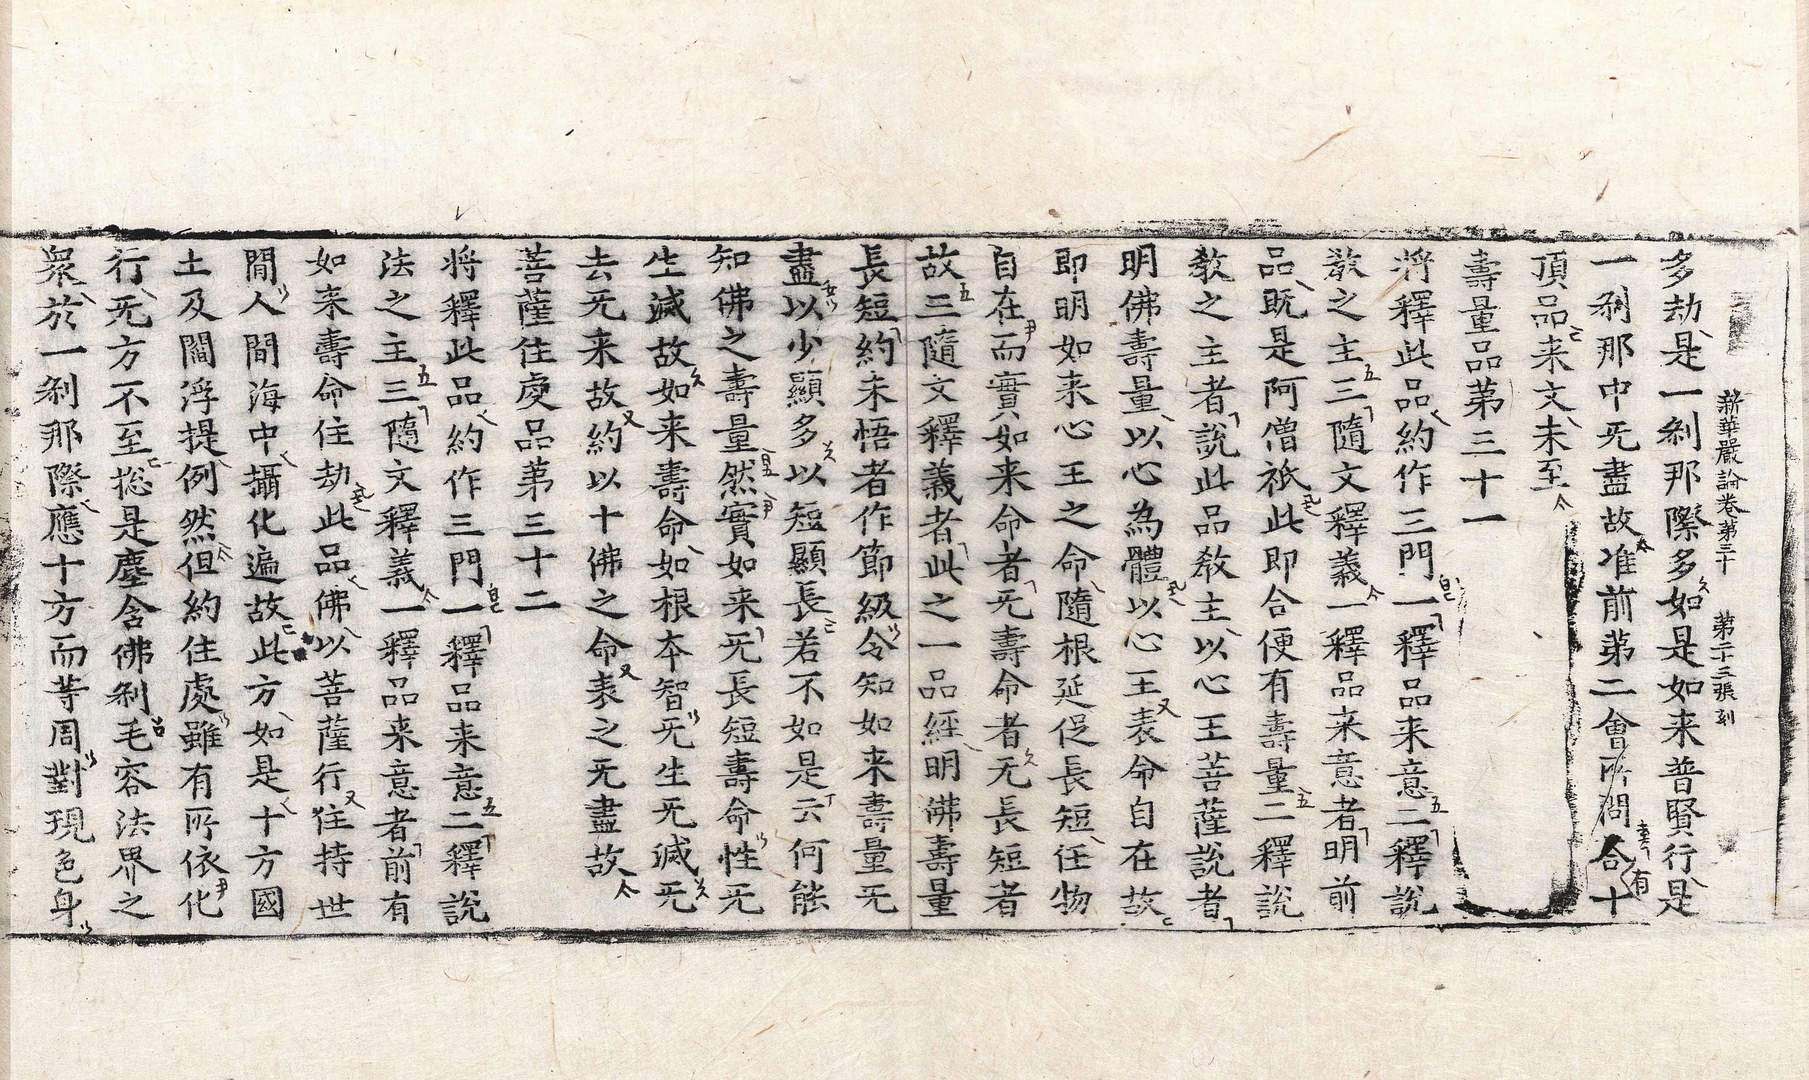 新華嚴論卷第三十　第二十三張刻
多劫是一剎那際多如是如来普賢行是
一剎那中无盡故准前第二會所問合十
有
頂品来文未至
壽量品第三十一
將釋此品約作三門一釋品来意二釋說
教之主三隨文釋義一釋品来意者明前
品既是阿僧祇此即合便有壽量二釋說
教之主者說此品教主以心王菩薩說者
明佛壽量以心為體以心王表命自在故
即明如来心王之命隨根延促長短任物
自在而實如来命者无壽命者无長短者
故三隨文釋義者此之一品經明佛壽量
長短約未悟者作節級令知如来壽量无
盡以少顯多以短顯長若不如是云何能
知佛之壽量然實如来无長短壽命性无
生滅故如来壽命如根本智无生无滅无
去无来故約以十佛之命表之无盡故
菩薩住處品第三十二
將釋此品約作三門一釋品来意二釋說
法之主三隨文釋義一釋品来意者前有
如来壽命住劫此品佛以菩薩行住持世
間人間海中攝化遍故此方如是十方國
土及閻浮提例然但約住處雖有所依化
行无方不至捴是塵含佛剎毛容法界之
衆於一剎那際應十方而等周對現色身